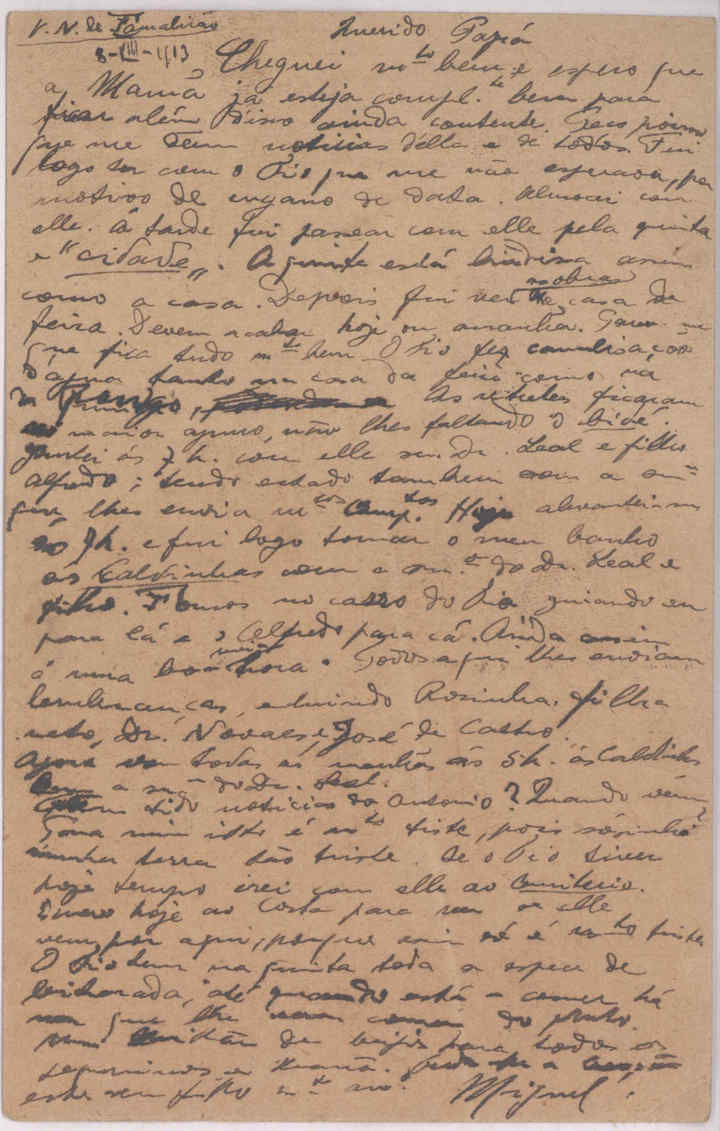 V. N. de Famalicão
8-VIII-1913
Querido Papá
Cheguei m.to bem e espero que
a Mamã já esteja compl.te bem para
ficar além disso ainda contente. Peço
que me dêem noticias d'ella e de todos. Fui
logo ter com o Pio que me não esperava, por
motivo de engano de data. Almocei com
elle. Á tarde fui passear com elle pela quinta
e "cidade". A quinta está lindissima assim
como a casa. Depois fui ver as obras da casa da
feira. Devem acabar hoje ou amanhã.
que fica tudo m.to bem. O Pio fez canalisação
d'agua tanto na casa da feira como na
As retretes ficaram
no maior apuro, não lhes faltando o bidé.
Jantei ás 7 h. com elle Dr. Leal e filho
Alfredo; tendo estado tambem com a
que lhes envia m.tos Cump.tos Hoje alevantei-me
ás 7 h. e fui logo tomar o meu banho
ás Caldinhas com a do Dr. Leal e
filho. Fomos no carro do Pio guiando eu
para lá e o Alfredo para cá. Ainda assim
é uma boa meia hora. Todos aqui lhes enviam
lembranças, incluindo Rosinha, filha
neto, Dr. Novaes, e José de Castro.
Agora vou todas as manhãs ás 5 h. ás Caldinhas
com a do Dr. Leal.
Teem tido noticias do Antonio? Quando vêm?
Para mim isto é m.to triste, pois sósinho
n'uma terra tão triste. Se o Pio tiver
hoje tempo irei com elle ao Cemiterio.
Escrevo hoje ao Costa para ver se elle
vem por aqui, porque assim só é muito triste
O Pio tem na quinta toda a especie de
bicharada, até quando está a comer há
que lhe vem comer do prato.
de beijos para todos os
pequeninos e Mamã.
este seu filho m.to am.o
Miguel.